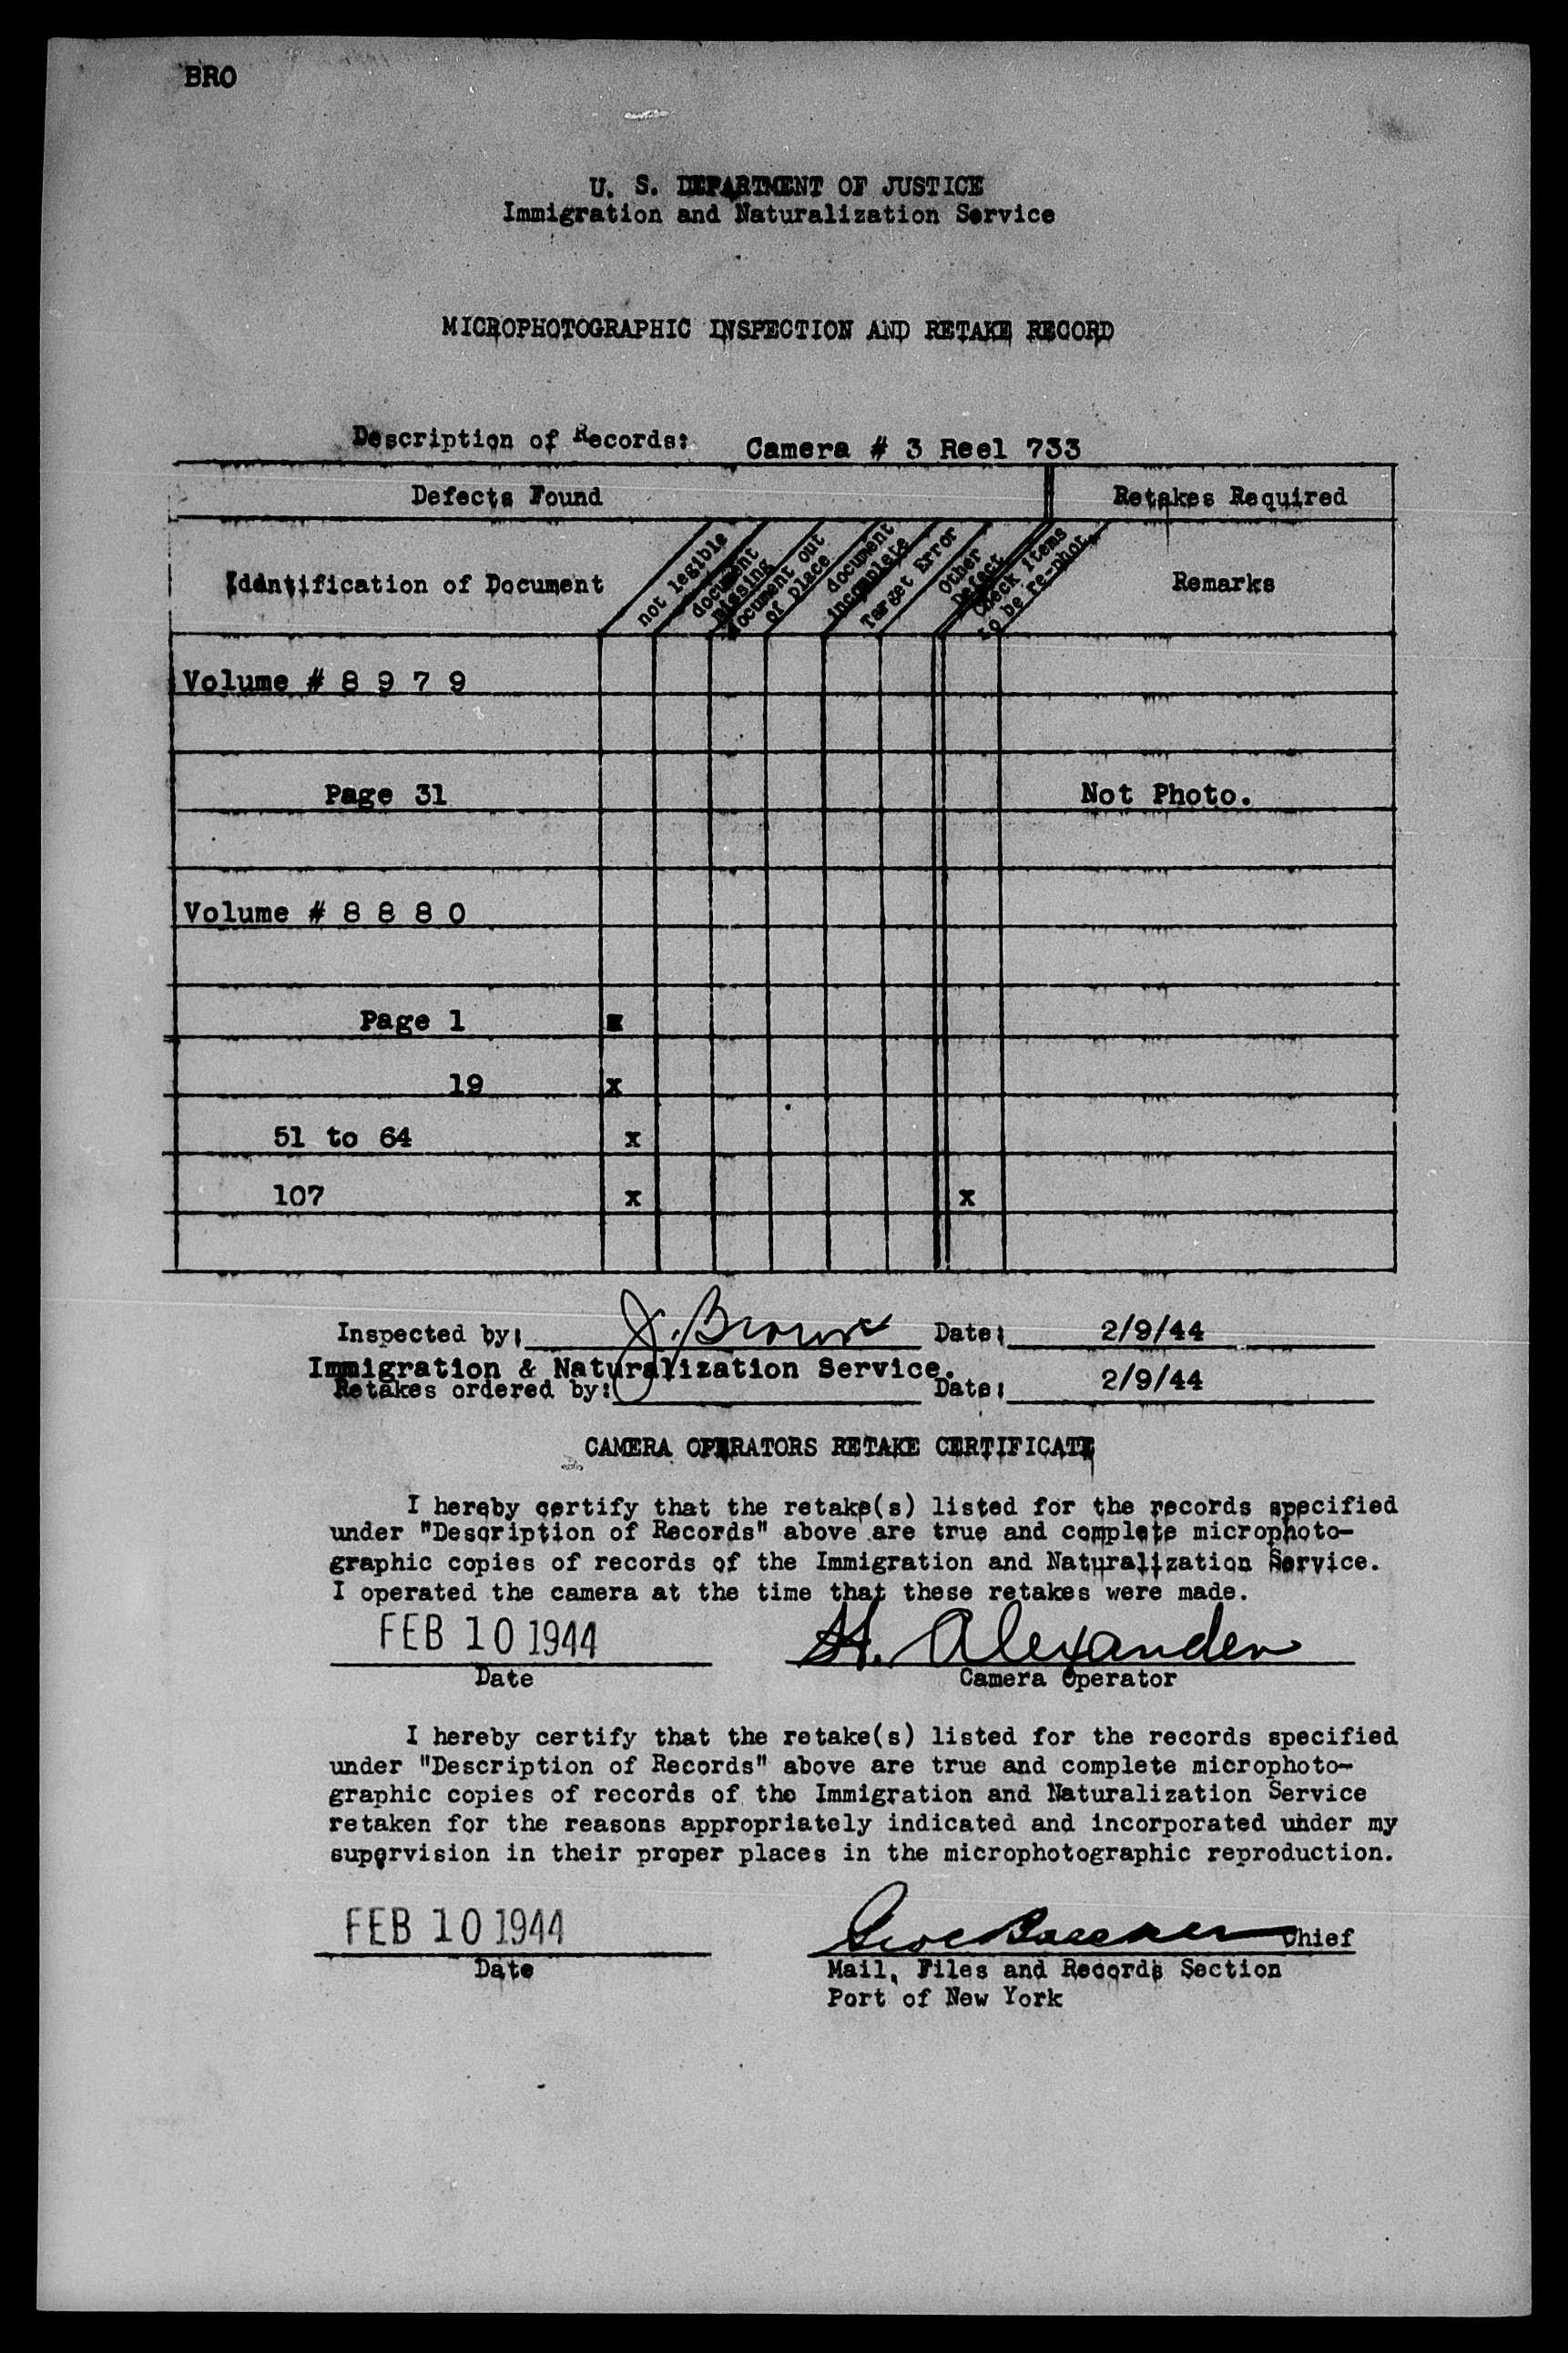 BRO
U. S. DEPARTMENT OF JUSTICE
Immigration and Naturalization Service
MICROPHOTOGRAPHIC INSPECTION AND RETAKE RECORD
Description of Records: Camera # 3 Reel 733
Defects Found Retakes Required
Identification of Document
not legible
document missing
document out of place
document incomplete
Target Error
Other Defect
Check items to be re-phot.
Remarks
Volume # 8 9 7 9
Page 31 Not Photo.
Volume # 8 8 8 0
Page 1 x
19 x
51 to 64 x
107 x x
Inspected by: J. Brown Date: 2/9/44
Immigration & Naturalization Service.
Retakes ordered by: Date: 2/9/44
CAMERA OPERATORS RETAKE CERTIFICATE
I hereby certify that the retake(s) listed for the records specified
under "Description of Records" above are true and complete microphoto-
graphic copies of records of the Immigration and Naturalization Service.
I operated the camera at the time that these retakes were made.
FEB 10 1944 H. Alexander
Date Camera Operator
I hereby certify that the retake(s) listed for the records specified
under "Description of Records" above are true and complete microphoto-
graphic copies of records of the Immigration and Naturalization Service
retaken for the reasons appropriately indicated and incorporated under my
supervision in their proper places in the microphotographic reproduction.
FEB 10 1944 Chief
Date Mail, Files and Records Section
Port of New York